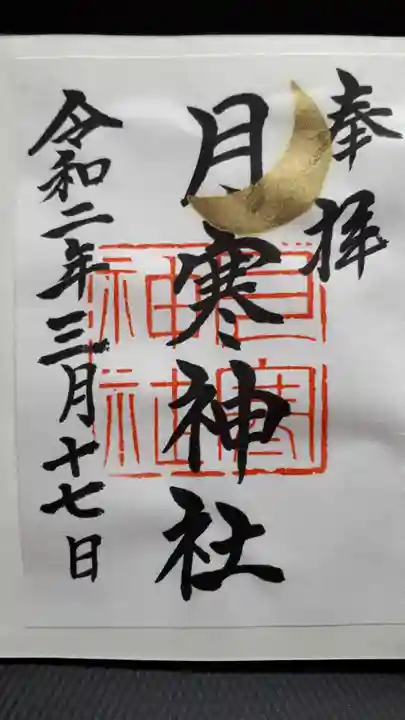 奉拝
月寒神社
令和二年三月十七日
月寒神社